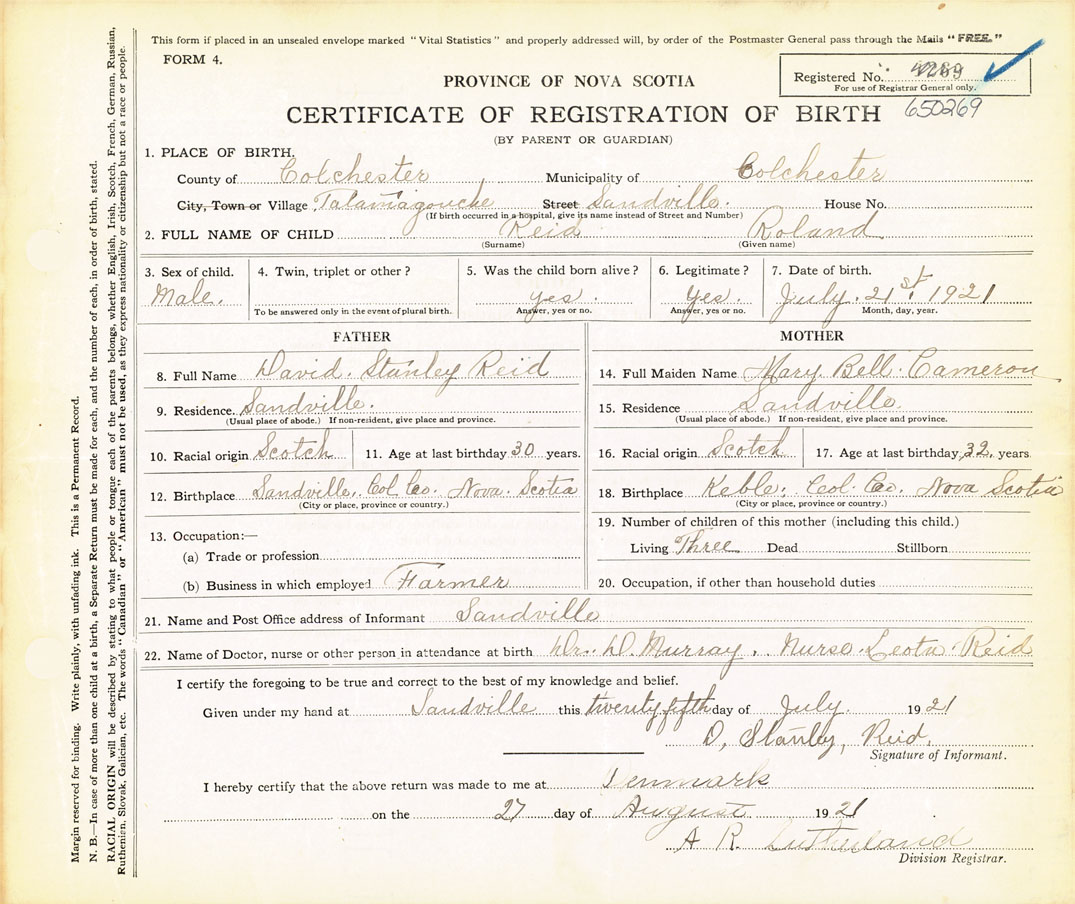 This form if placed in an unsealed envelope marked "Vital Statistics" and properly addressed will, by order of the Postmaster General pass through the Mails "FREE."
FORM 4.
Registered No.
For use of Registrar General only.
650269
PROVINCE OF NOVA SCOTIA
CERTIFICATE OF REGISTRATION OF BIRTH
(BY PARENT OR GUARDIAN)
1. PLACE OF BIRTH.
County of Colchester Municipality of Colchester
City, Town or Village Tatamagouche Street Sandville. House No.
(If birth occurred in a hospital, give its name instead of Street and Number)
2. FULL NAME OF CHILD Reid Roland
(Surname) (Given name)
3. Sex of child. 4. Twin, triplet or other? 5. Was the child born alive? 6. Legitimate? 7. Date of birth.
Male. yes. Yes. July. 21st. 1921
To be answered only in the event of plural birth. Answer, yes or no. Answer, yes or no. Month, day, year.
FATHER
8. Full Name David. Stanley Reid
9. Residence. Sandville.
(Usual place of abode.) If non-resident, give place and province.
10. Racial origin Scotch 11. Age at last birthday 30 years.
12. Birthplace Sandville, Col Co. Nova. Scotia
(City or place, province or country.)
13. Occupation:—
(a) Trade or profession
(b) Business in which employed Farmer
MOTHER
14. Full Maiden Name Mary Bell. Cameron
15. Residence Sandville.
(Usual place of abode.) If non-resident, give place and province.
16. Racial origin Scotch 17. Age at last birthday 32. years
18. Birthplace Keble. Col. Co. Nova Scotia
(City or place, province or country.)
19. Number of children of this mother (including this child.)
Living Three Dead Stillborn
20. Occupation, if other than household duties
21. Name and Post Office address of Informant Sandville
22. Name of Doctor, nurse or other person in attendance at birth Dr. D. Murray. Nurse. Leota. Reid
I certify the foregoing to be true and correct to the best of my knowledge and belief.
Given under my hand at Sandville this twenty fifth day of July. 1921
D. Stanley, Reid.
Signature of Informant.
I hereby certify that the above return was made to me at Denmark
on the 27 day of August 1921
A R. Sutherland
Division Registrar.
Margin reserved for binding. Write plainly, with unfading ink. This is a Permanent Record.
N. B.—In case of more than one child at a birth, a Separate Return must be made for each, and the number of each, in order of birth, stated.
RACIAL ORIGIN will be described by stating to what people or tongue each of the parents belongs, whether English, Irish, Scotch, French, German, Russian,
Ruthenian, Slovak, Galician, etc. The words "Canadian" or "American" must not be used, as they express nationality or citizenship but not a race or people.